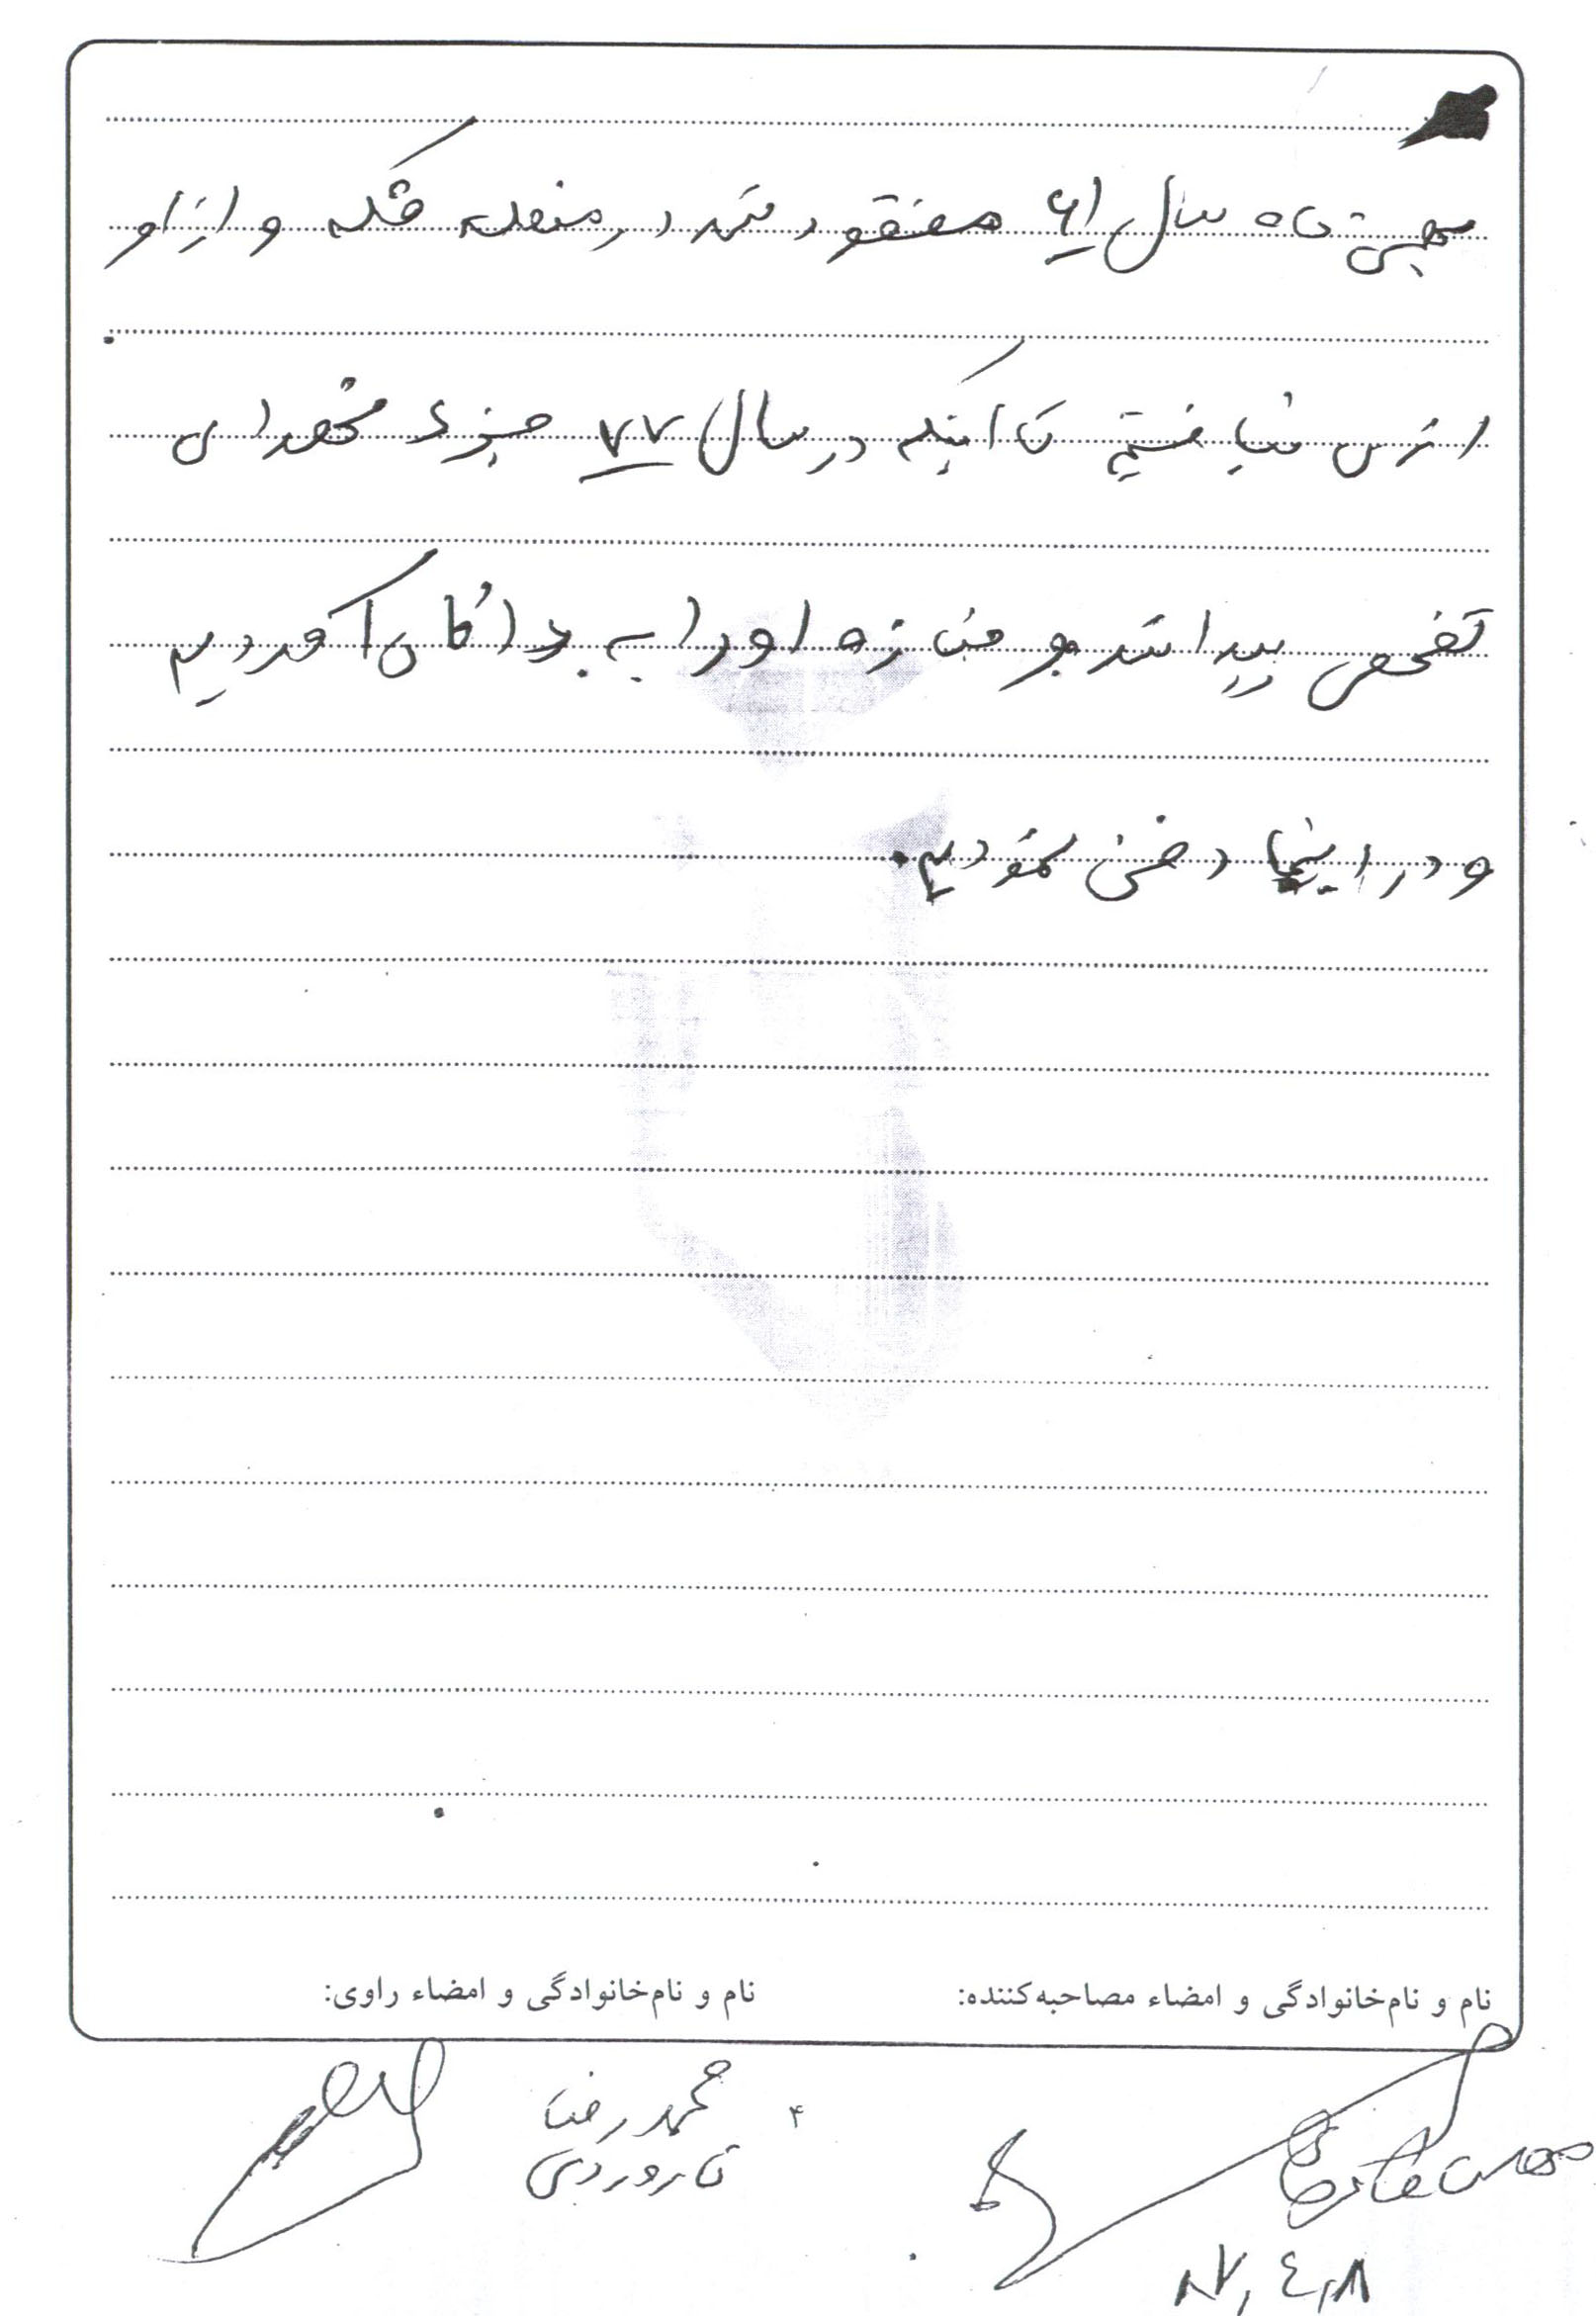 بهمن ماه سال ۶۱ مفقود شد در منطقه فکه و از او
اثری نیافتیم تا اینکه در سال ۷۷ جزء شهدای
تفحص پیدا شد و جنازه او را به آوردیم
و در اینجا دفن نمودیم.
نام و نام‌خانوادگی و امضاء مصاحبه‌کننده:
نام و نام‌خانوادگی و امضاء راوی:
محمدرضا
۴
۸۷,۴,۸